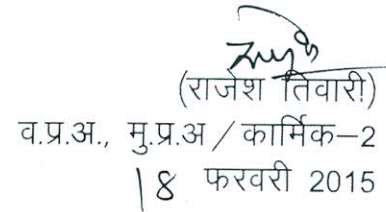 (राजेश तिवारी)
व.प्र.अ., मु.प्र.अ / कार्मिक–2
18 फरवरी 2015